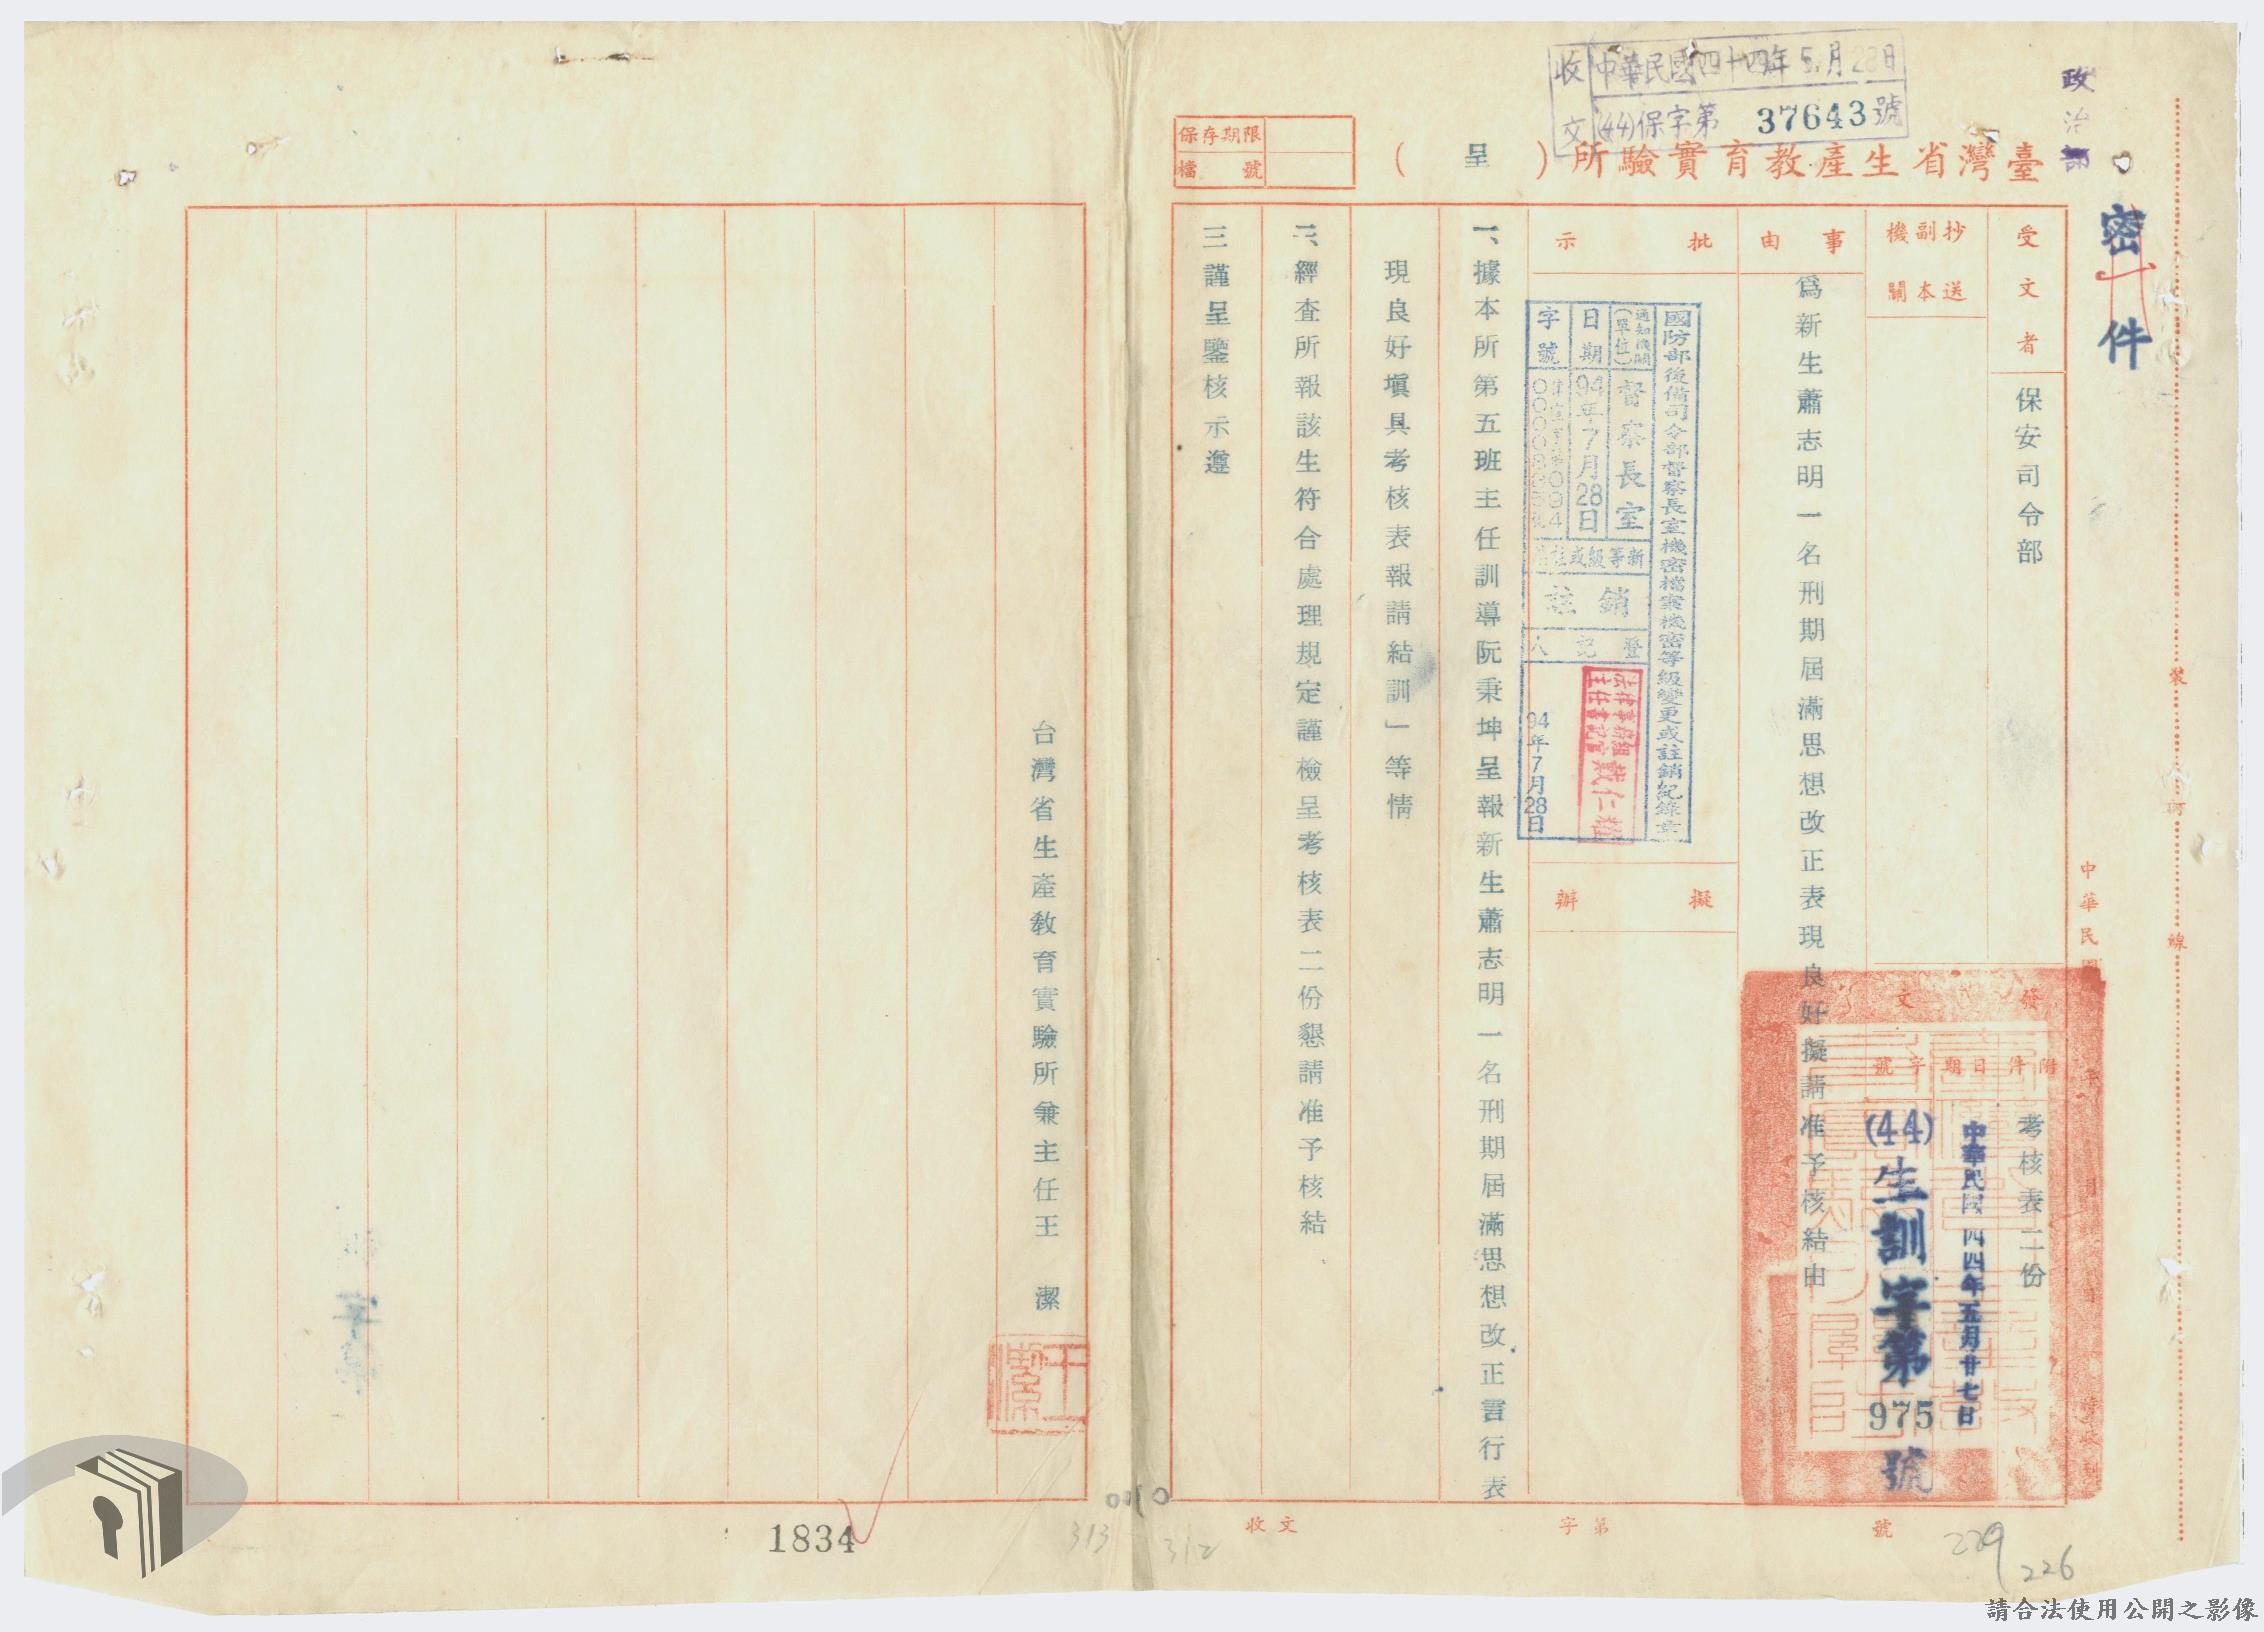 密件
政治部
收文
中華民國四十四年5月28日
(44)保字第37643號
臺灣省生產教育實驗所（呈）
保存期限
檔號
受文者
保安司令部
抄送副本機關
事由
為新生蕭志明一名刑期屆滿思想改正表現良好擬請准予核結由
發文
附件
考核表二份
日期
中華民國四四年五月廿七日
字號
(44)生訓字第975號
批示
擬辦
國防部後備司令部督察長室機密檔案機密等級變更或註銷紀錄章
通知機關(單位)
督察長室
日期
94年7月28日
字號
新等級或註銷
註銷
登記人
法律事務組
主任書記官
戴仁
94年7月28日
一、據本所第五班主任訓導阮秉坤呈報新生蕭志明一名刑期屆滿思想改正言行表
現良好填具考核表報請結訓」等情
二、經查所報該生符合處理規定謹檢呈考核表二份懇請准予核結
三謹呈鑒核示遵
台灣省生產教育實驗所兼主任王潔
王潔
裝
訂
線
中華民國
收文
字第
號
1834
313
312
229
226
請合法使用公開之影像